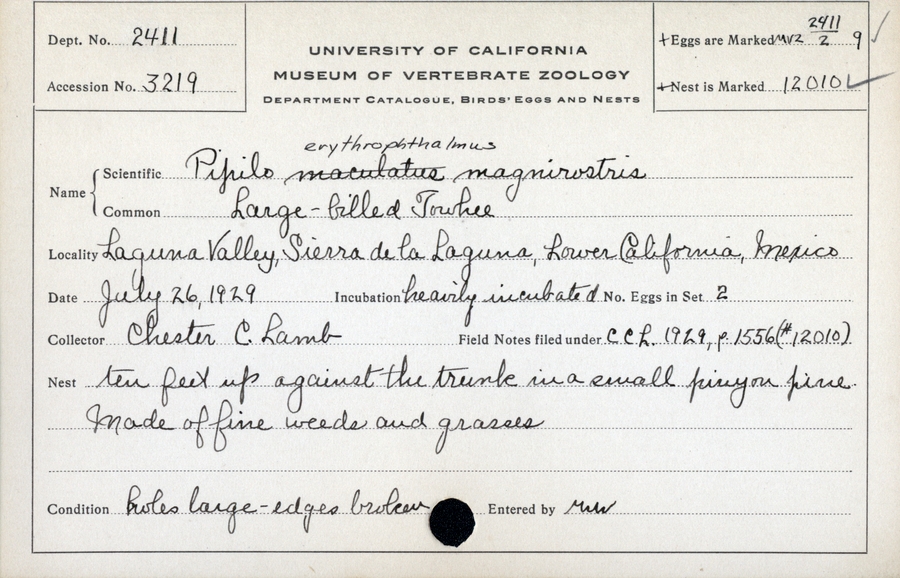 Dept. No. 2411
Accession No. 3219
UNIVERSITY OF CALIFORNIA
MUSEUM OF VERTEBRATE ZOOLOGY
DEPARTMENT CATALOGUE, BIRDS' EGGS AND NESTS
+Eggs are Marked MVZ 2411/2 9
+Nest is Marked 12010
erythrophthalmus
Name Scientific Pipilo maculatus magnirostris
Common Large-billed Towhee
Locality Laguna Valley, Sierra de la Laguna, Lower California, Mexico
Date July 26, 1929 Incubation heavily incubated No. Eggs in Set 2
Collector Chester C. Lamb Field Notes filed under C.C.L. 1929, p. 1556 (#12010)
Nest ten feet up against the trunk in a small pinyon pine.
Made of fine weeds and grasses
Condition holes large-edges broken Entered by MW